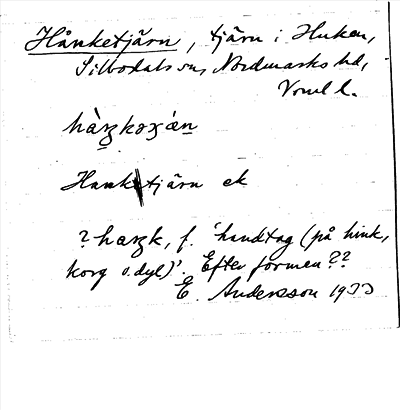 Hånketjärn, tjärn i Huken,
Silbodals sn, Nordmarks hd,
Vrml l.
Hanketjärn ek
? haŋk, f. 'handtag (på hink,
korg o.dyl)'. Efter formen??
E. Andersson 1933